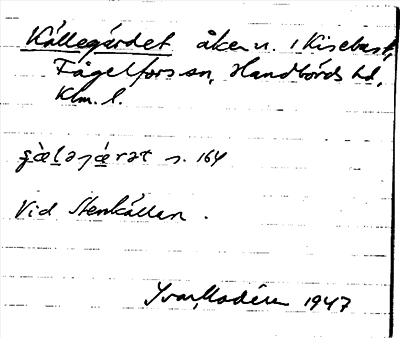 Källegärdet åker n. i Kisebast,
Fågelfors sn, Handbörds hd,
Klm. l.
s. 164
Vid Stenkällan.
Ivar Modéer 1947